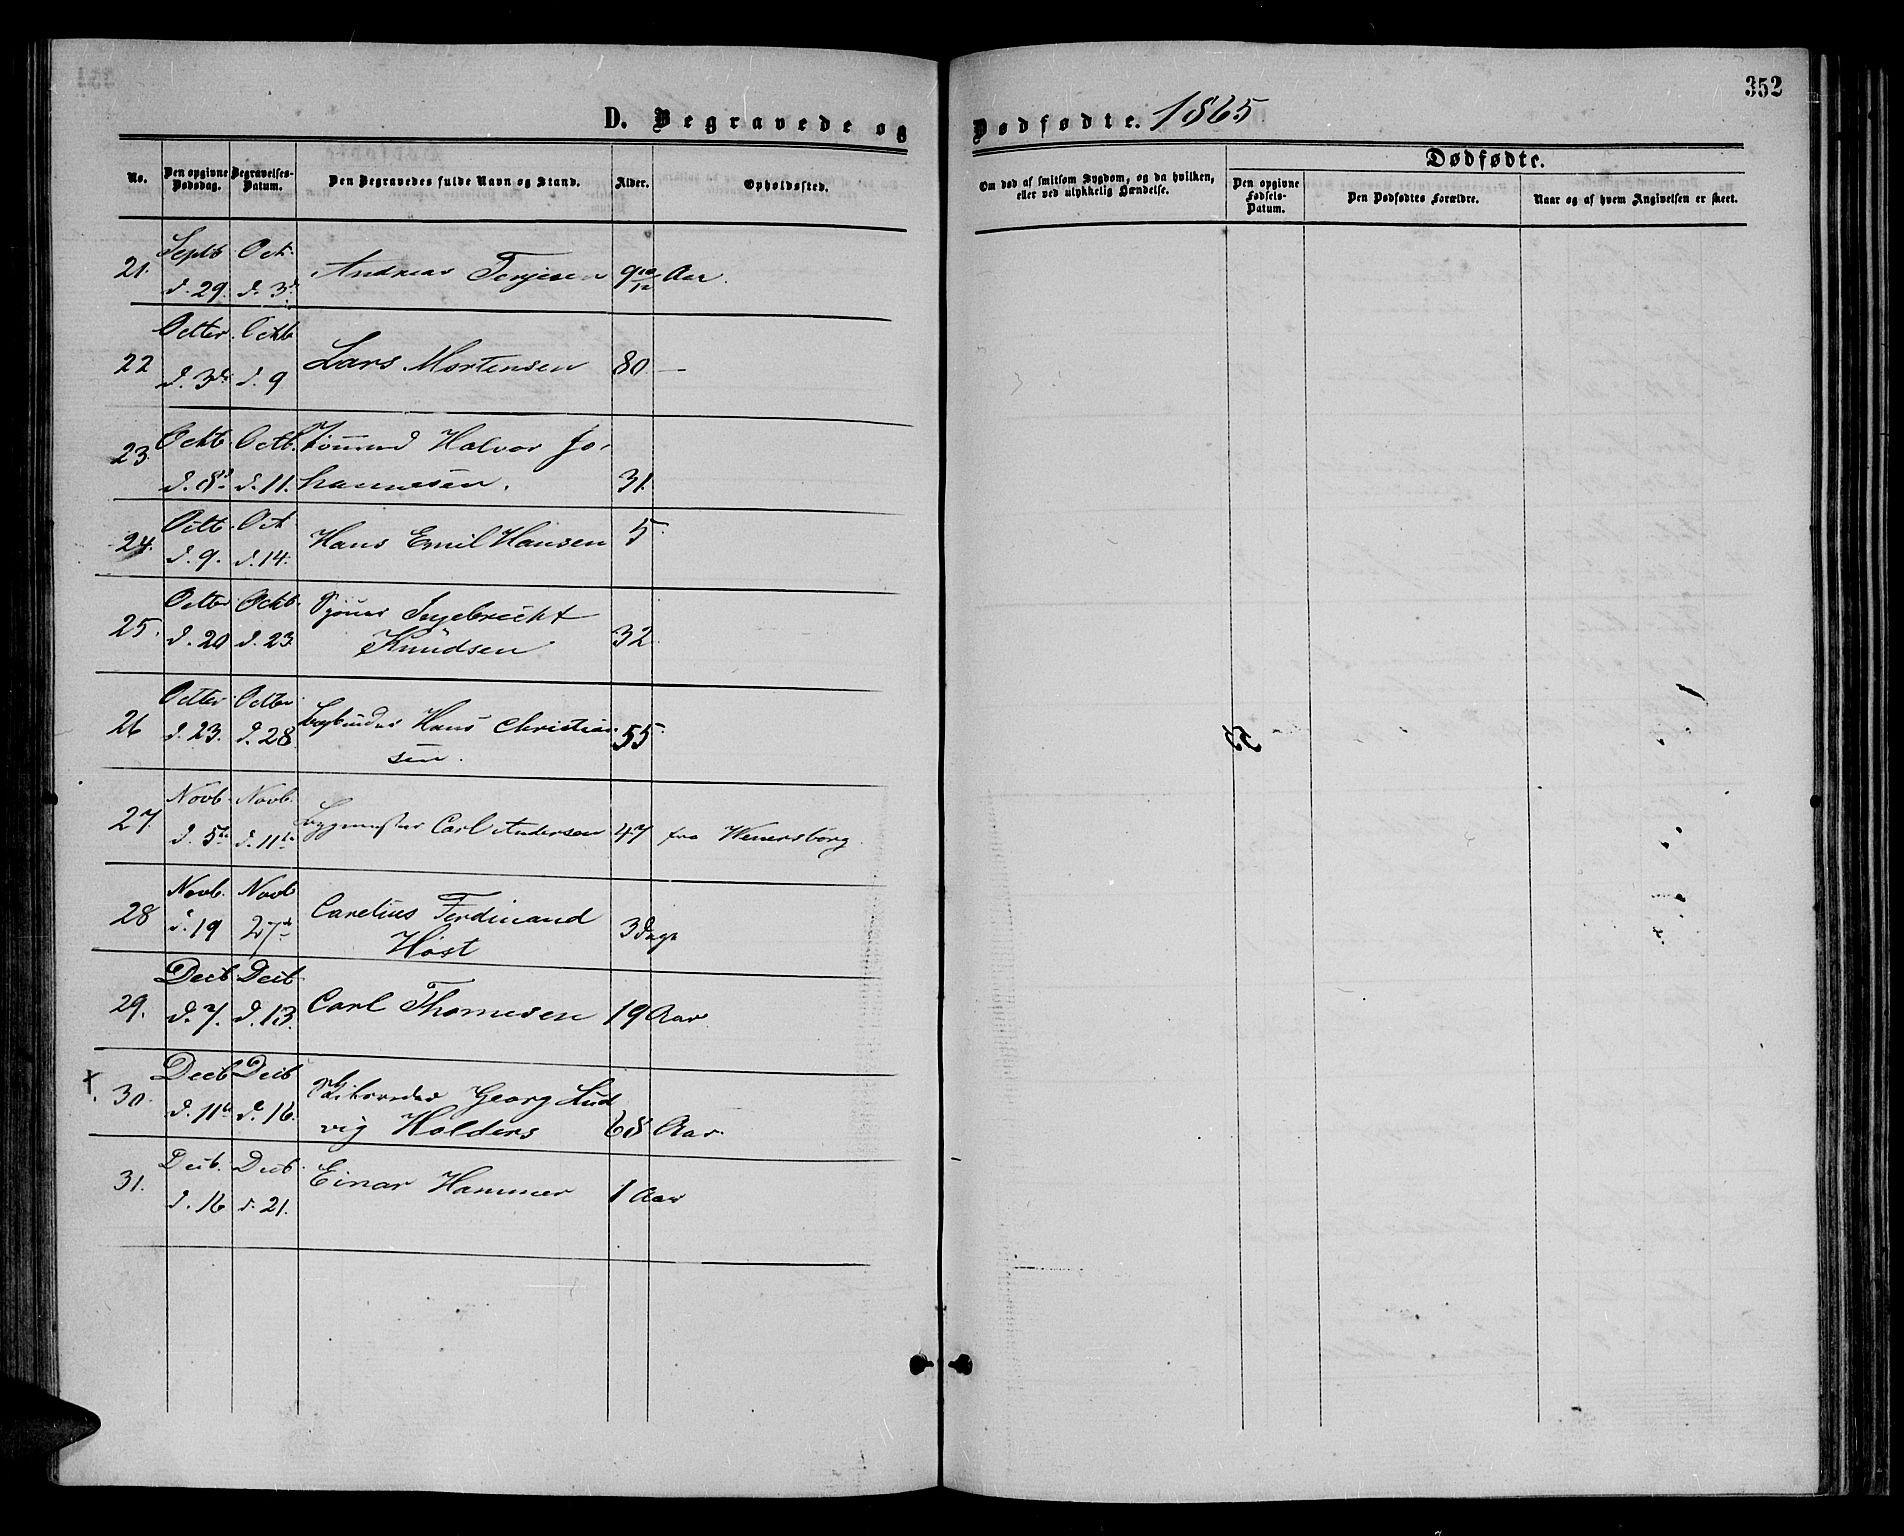 352
D. Begravede og Dødfødte. 1865
Dødfødte.
No.
Den opgivne Dødsdag.
Begravelses-Datum.
Den Begravedes fulde Navn og Stand.
Alder.
Opholdssted.
Om død af smitsom Sygdom, og da hvilken, eller ved ulykkelig Hændelse.
Den opgivne Fødsels-Datum.
Den Dødfødtes Forældre.
Naar og af hvem Angivelsen er skeet.
Septb Oct.
21. d. 29. d. 3d Andreas Terjesen 9 10/12 Aar.
Octbr. Octb
22 d. 3de d. 9 Lars Mortensen 80 —
Octb. Octb. Halvor Jo-
23. d. 8d d. 11. hannesen. 31.
Octb. Oct
24. d. 9. d. 14. Hans Emil Hansen 5
Octbr Octb. Ingebrecht
25. d. 20 d. 23 Knudsen 32
Octbr Octbr
26 d. 23. d. 28. Hans Christian- 55
sen.
Novb. Novb.
27. d. 5te d. 11te Bygmester Carl Andersen 47 fra Wenersborg.
Novb. Novb Carelius Ferdinand
28 d. 19 27de Høst 3 Dage
Decb. Decb.
29. d. 7. d. 13. Carl Thomesen 19 Aar.
Decb Decb Georg Lud
x. 30. d. 11te d. 16. vig Holders 68 Aar.
Decb. Decb.
31. d. 16 d. 21. Einar Hammer 1 Aar